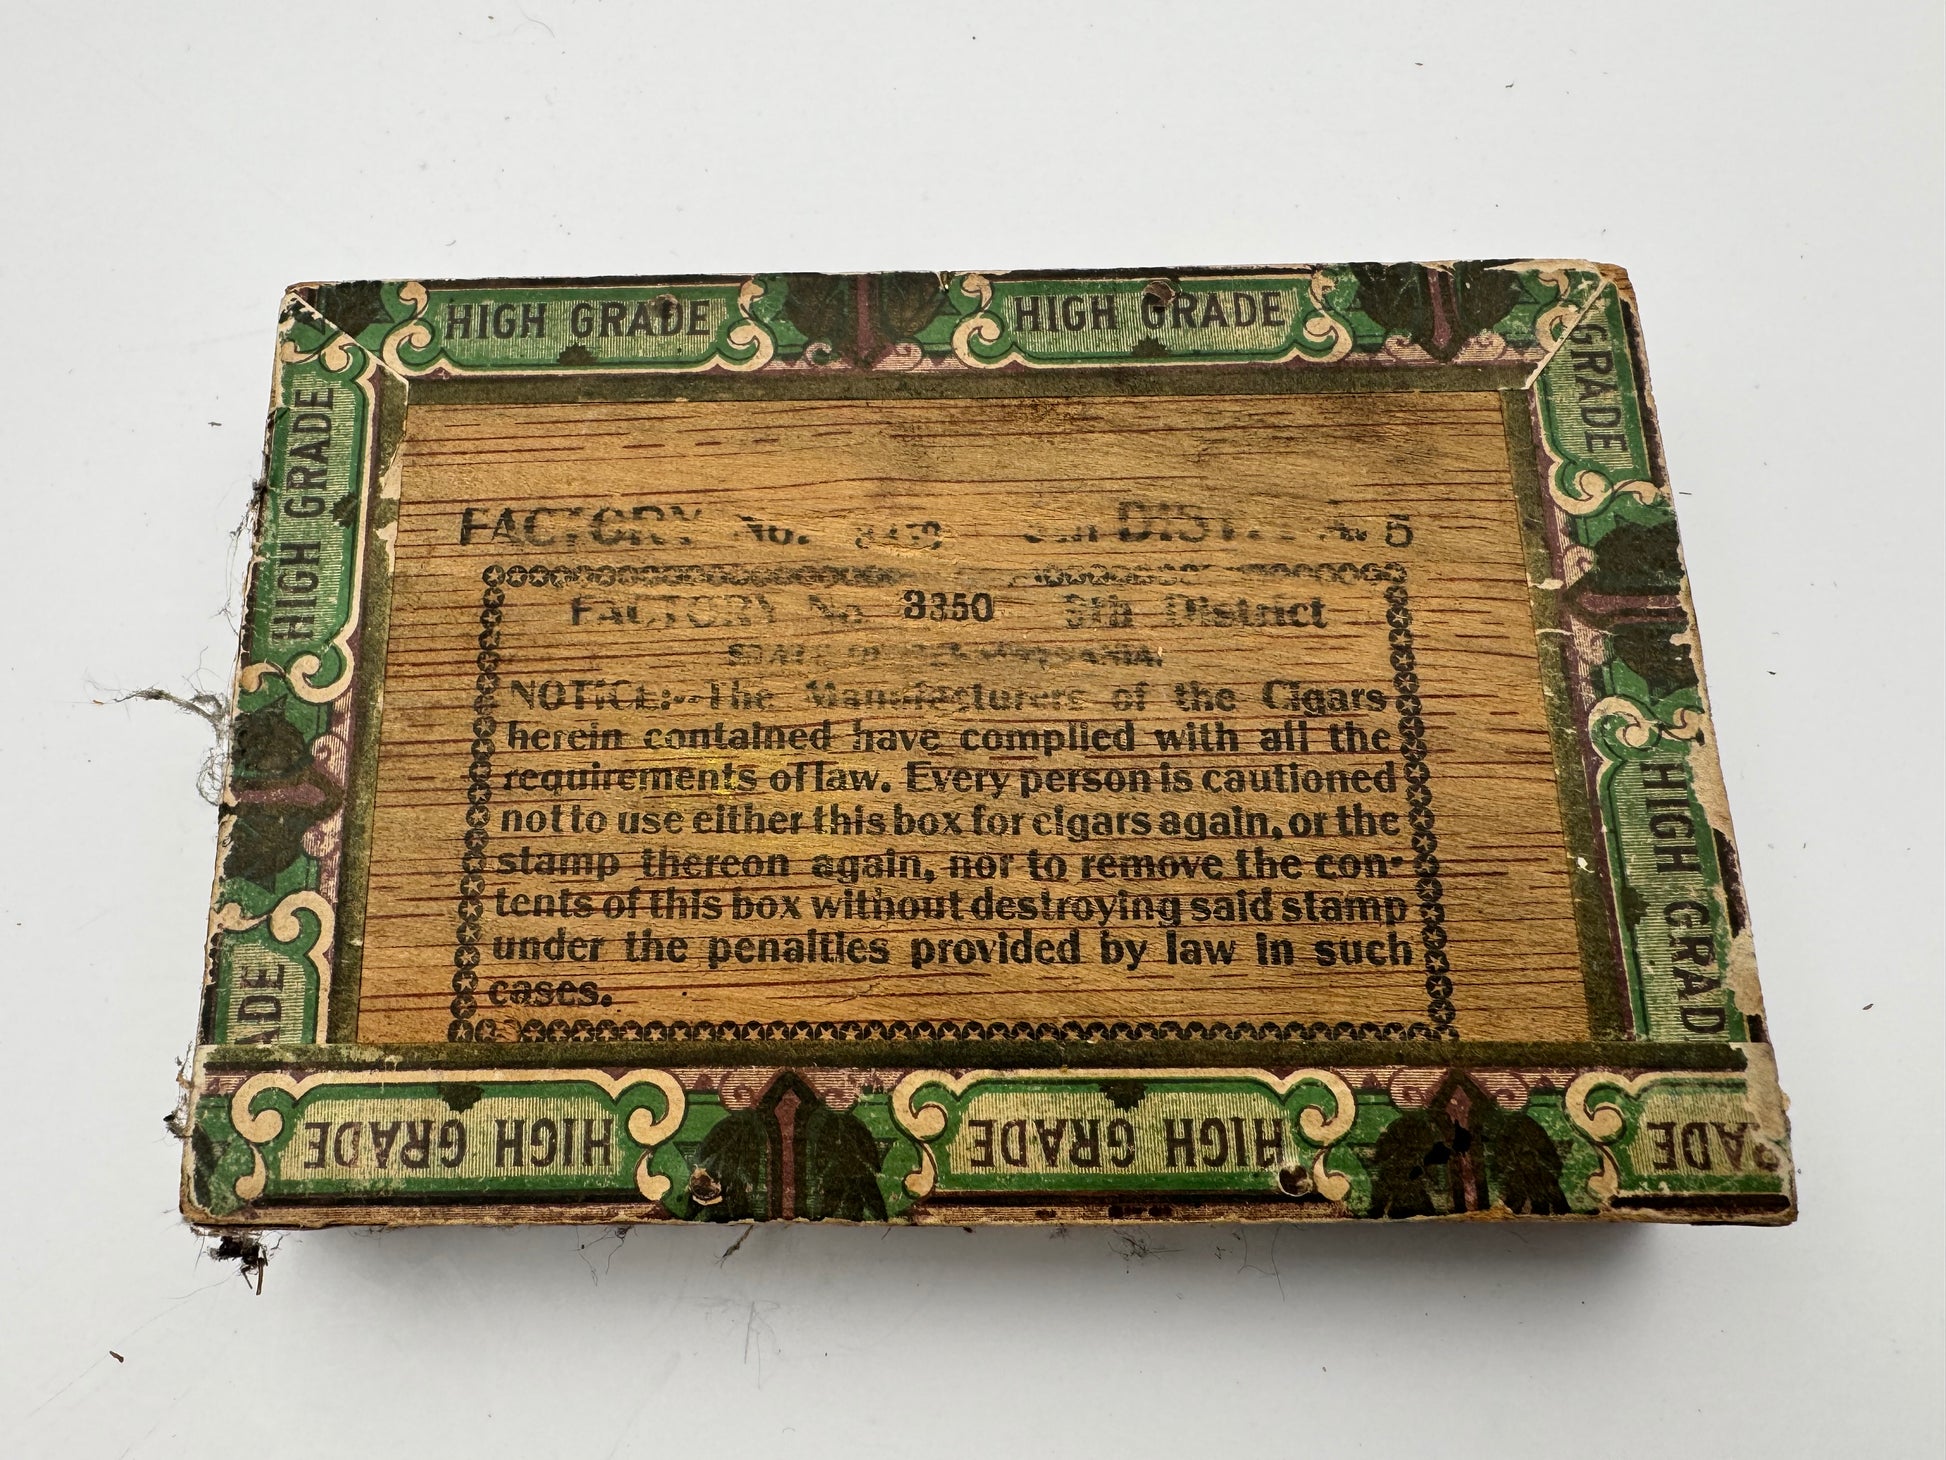 HIGH GRADE HIGH GRADE
GRADE
HIGH GRADE
FACTORY No. DIST. 5
FACTORY No. 3350 9th District
STATE OF PENNSYLVANIA.
NOTICE:--The Manufacturers of the Cigars
herein contained have complied with all the
requirements of law. Every person is cautioned
not to use either this box for cigars again, or the
stamp thereon again, nor to remove the con-
tents of this box without destroying said stamp
under the penalties provided by law in such
cases.
HIGH GRAD
ADE
HIGH GRADE HIGH GRADE ADE